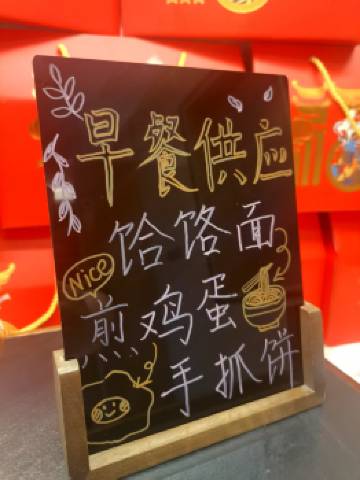 早餐供应
饸饹面
Nice
煎鸡蛋
手抓饼